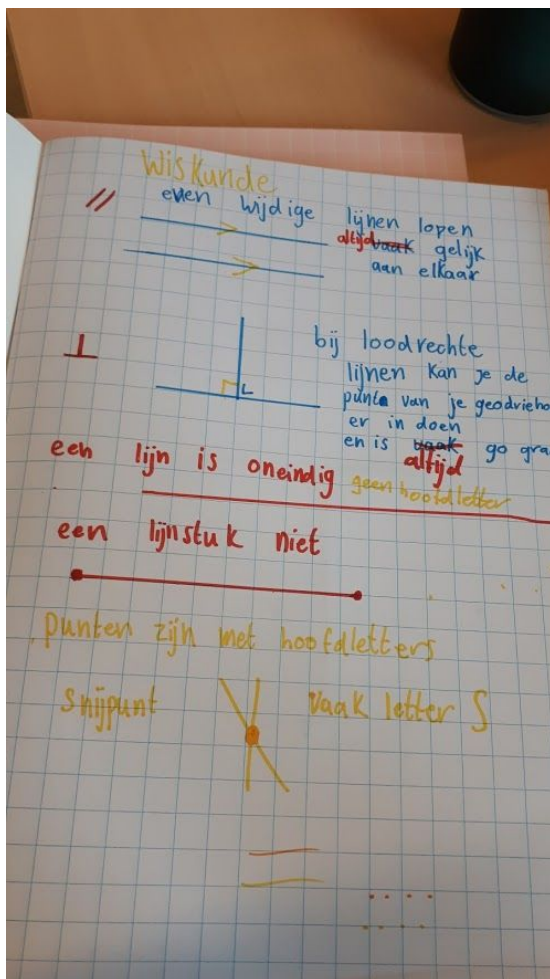 Wiskunde
// even wijdige lijnen lopen
altijd vaak gelijk
aan elkaar
⊥ bij loodrechte
L lijnen kan je de
punt van je geodrieho
er in doen
en is vaak go gra
altijd
een lijn is oneindig geen hoofdletter
een lijnstuk niet
punten zijn met hoofdletters
snijpunt vaak letter S